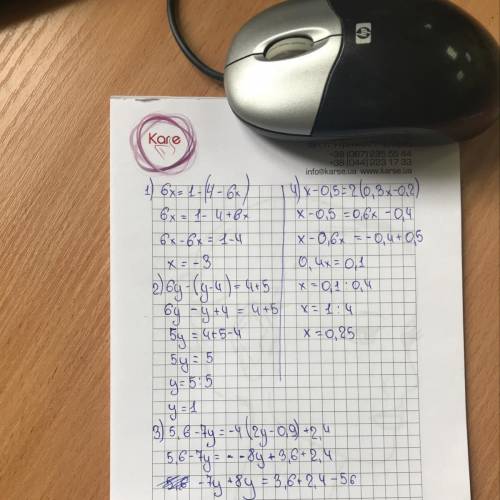 hp
Karse
+38 (067) 235 55 44
+38 (044) 223 17 33
info@karse.ua www.karse.ua
1) 6x = 1 - (4 - 6x)
6x = 1 - 4 + 6x
6x - 6x = 1 - 4
x = -3
2) 6y - (y - 4) = 4 + 5
6y - y + 4 = 4 + 5
5y = 4 + 5 - 4
5y = 5
y = 5 : 5
y = 1
3) 5,6 - 7y = -4 (2y - 0,9) + 2,4
5,6 - 7y = - - 8y + 3,6 + 2,4
-7y + 8y = 3,6 + 2,4 - 56
4) x - 0,5 = 2 (0,3x - 0,2)
x - 0,5 = 0,6x - 0,4
x - 0,6x = -0,4 + 0,5
0,4x = 0,1
x = 0,1 : 0,4
x = 1 : 4
x = 0,25